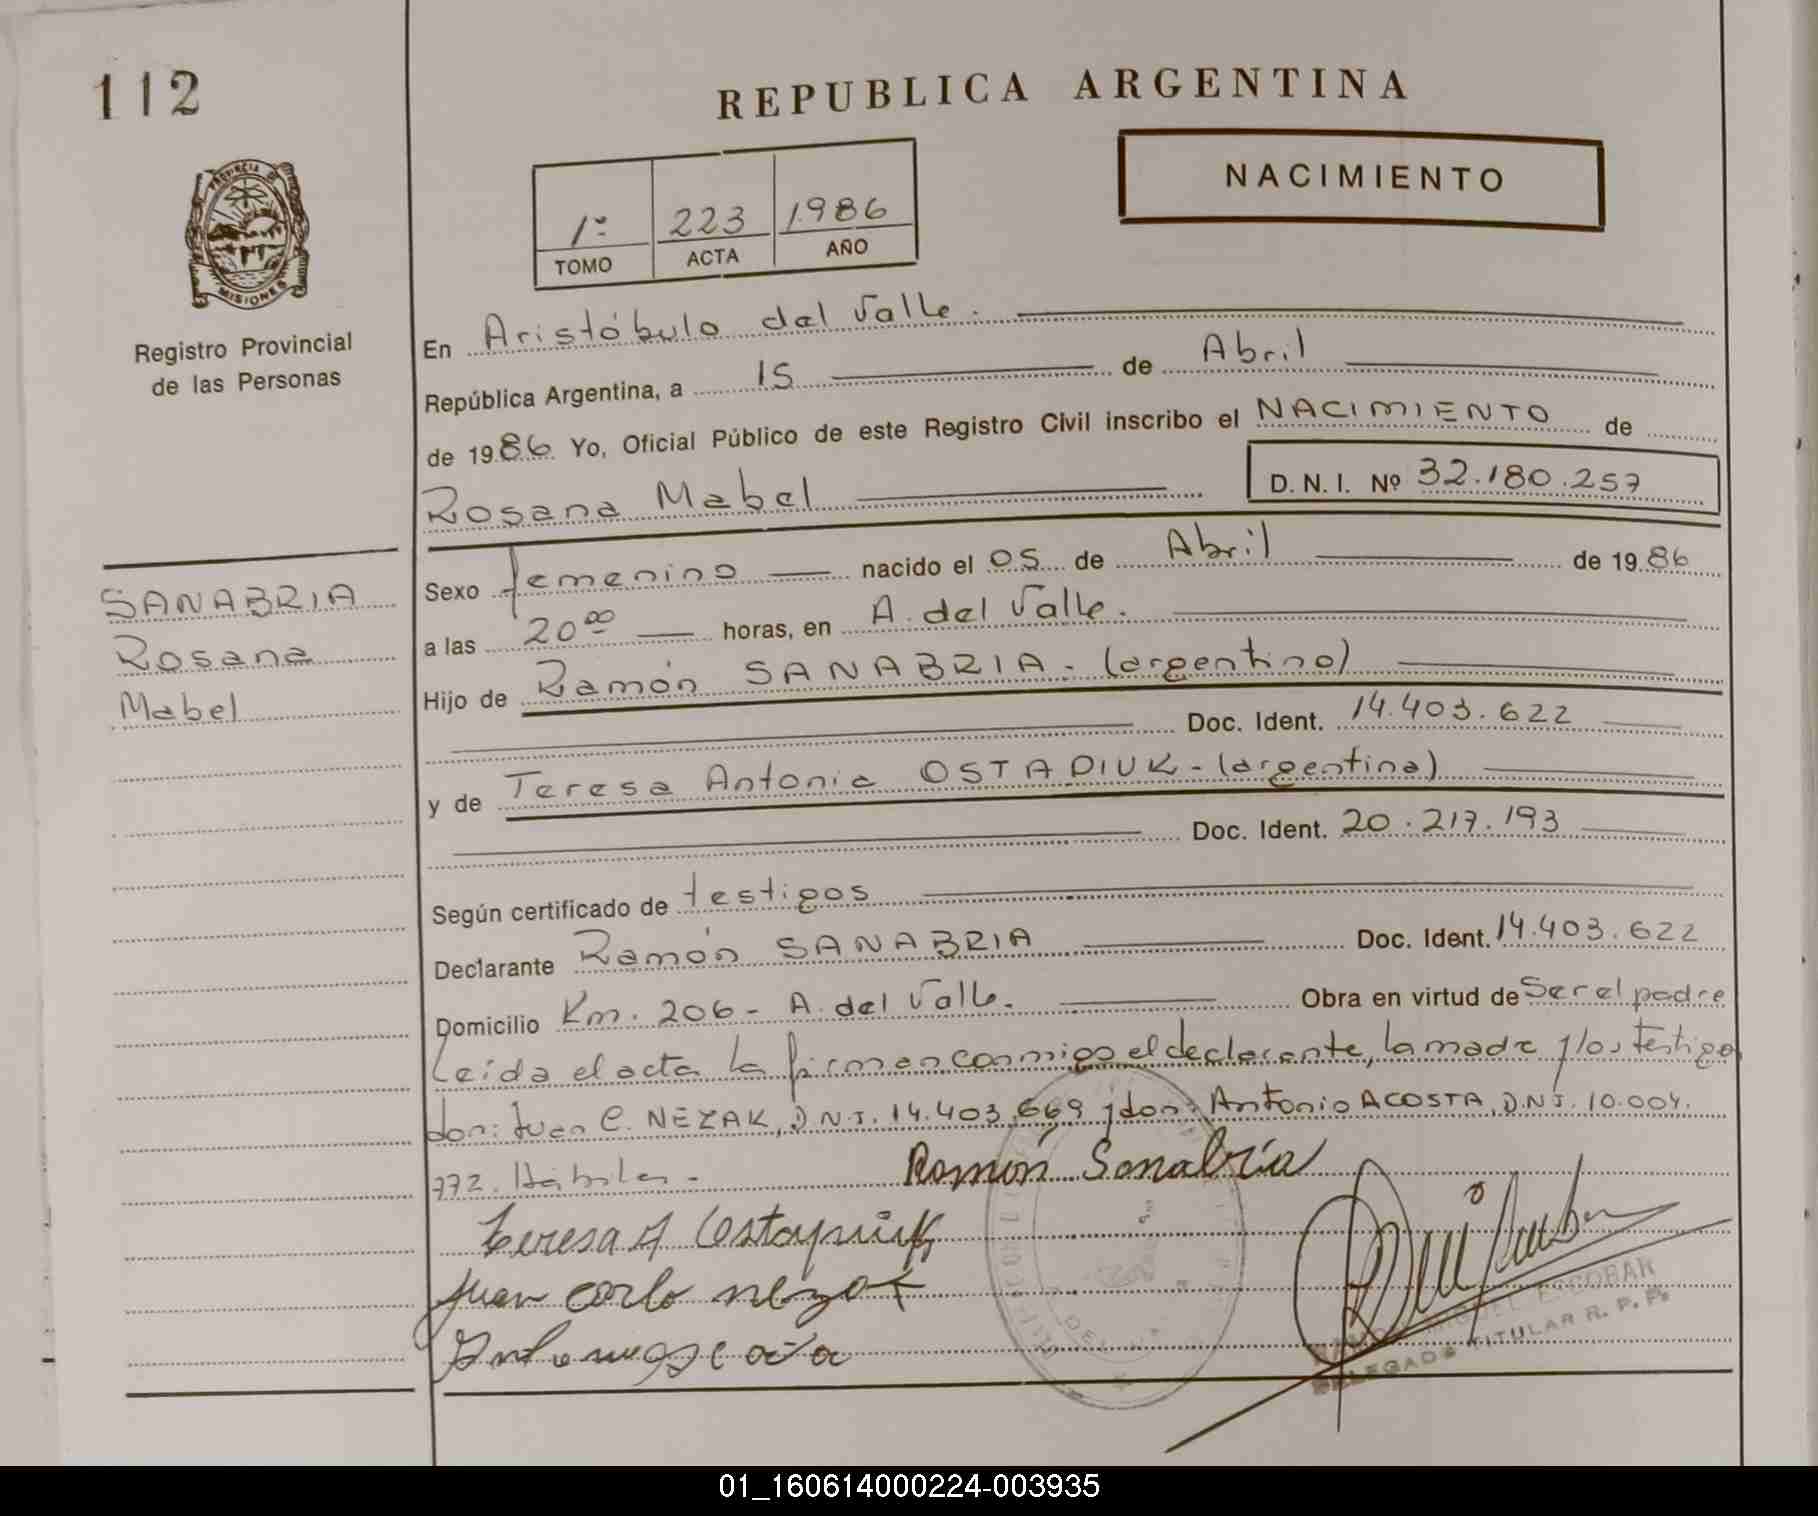 112
REPUBLICA ARGENTINA
NACIMIENTO
1º 223 1986
TOMO ACTA AÑO
PROVINCIA DE
MISIONES
Registro Provincial
de las Personas
En Aristóbulo del Valle.
República Argentina, a 15 de Abril
de 1986 Yo, Oficial Público de este Registro Civil inscribo el NACIMIENTO de
Rosana Mabel D.N.I. Nº 32.180.257
SANABRIA
Rosana
Mabel
Sexo femenino nacido el 05 de Abril de 1986
a las 20 00 horas, en A. del Valle.
Hijo de Ramón SANABRIA - (argentino)
Doc. Ident. 14.403.622
y de Teresa Antonia OSTAPIUK - (argentina)
Doc. Ident. 20.217.193
Según certificado de testigos
Declarante Ramón SANABRIA Doc. Ident. 14.403.622
Domicilio Km. 206 - A. del Valle. Obra en virtud de Ser el padre
Leída el acta la firman conmigo el declarante, la madre y los testigo
don: Juan C. NEZAK, D.N.I. 14.403.669 y don: Antonio ACOSTA, D.N.I. 10.004.
772. Hábiles -
Ramón Sanabria
Teresa A Ostapiuk
Juan Carlo nezak
ESCOBAR
DELEGADO TITULAR R. P. P.
01_160614000224-003935